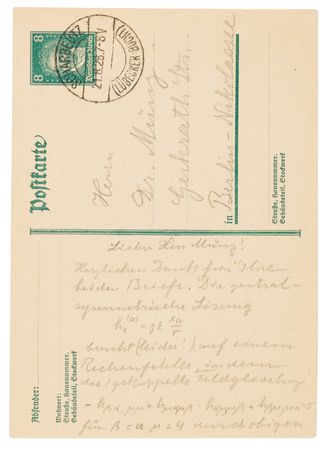 8
8
Deutsches Reich
SCHARBEUTZ
21.8.28.7-8V
(LÜBECKER BUCHT)
Postkarte
Herrn
Dr. Müntz
in Berlin-Nikolassee
Straße, Hausnummer,
Gebäudeteil, Stockwerk
Absender:
Wohnort:
Straße, Hausnummer,
Gebäudeteil, Stockwerk
Lieber Herr Müntz!
Herzlichen Dank für Ihre
beiden Briefe. Die zentral-
symmetrische Lösung
beruht (leider!) auf einem
Rechenfehler, indem
das gekoppelte Feldgleichung
für β = α μ = 4 und obigen